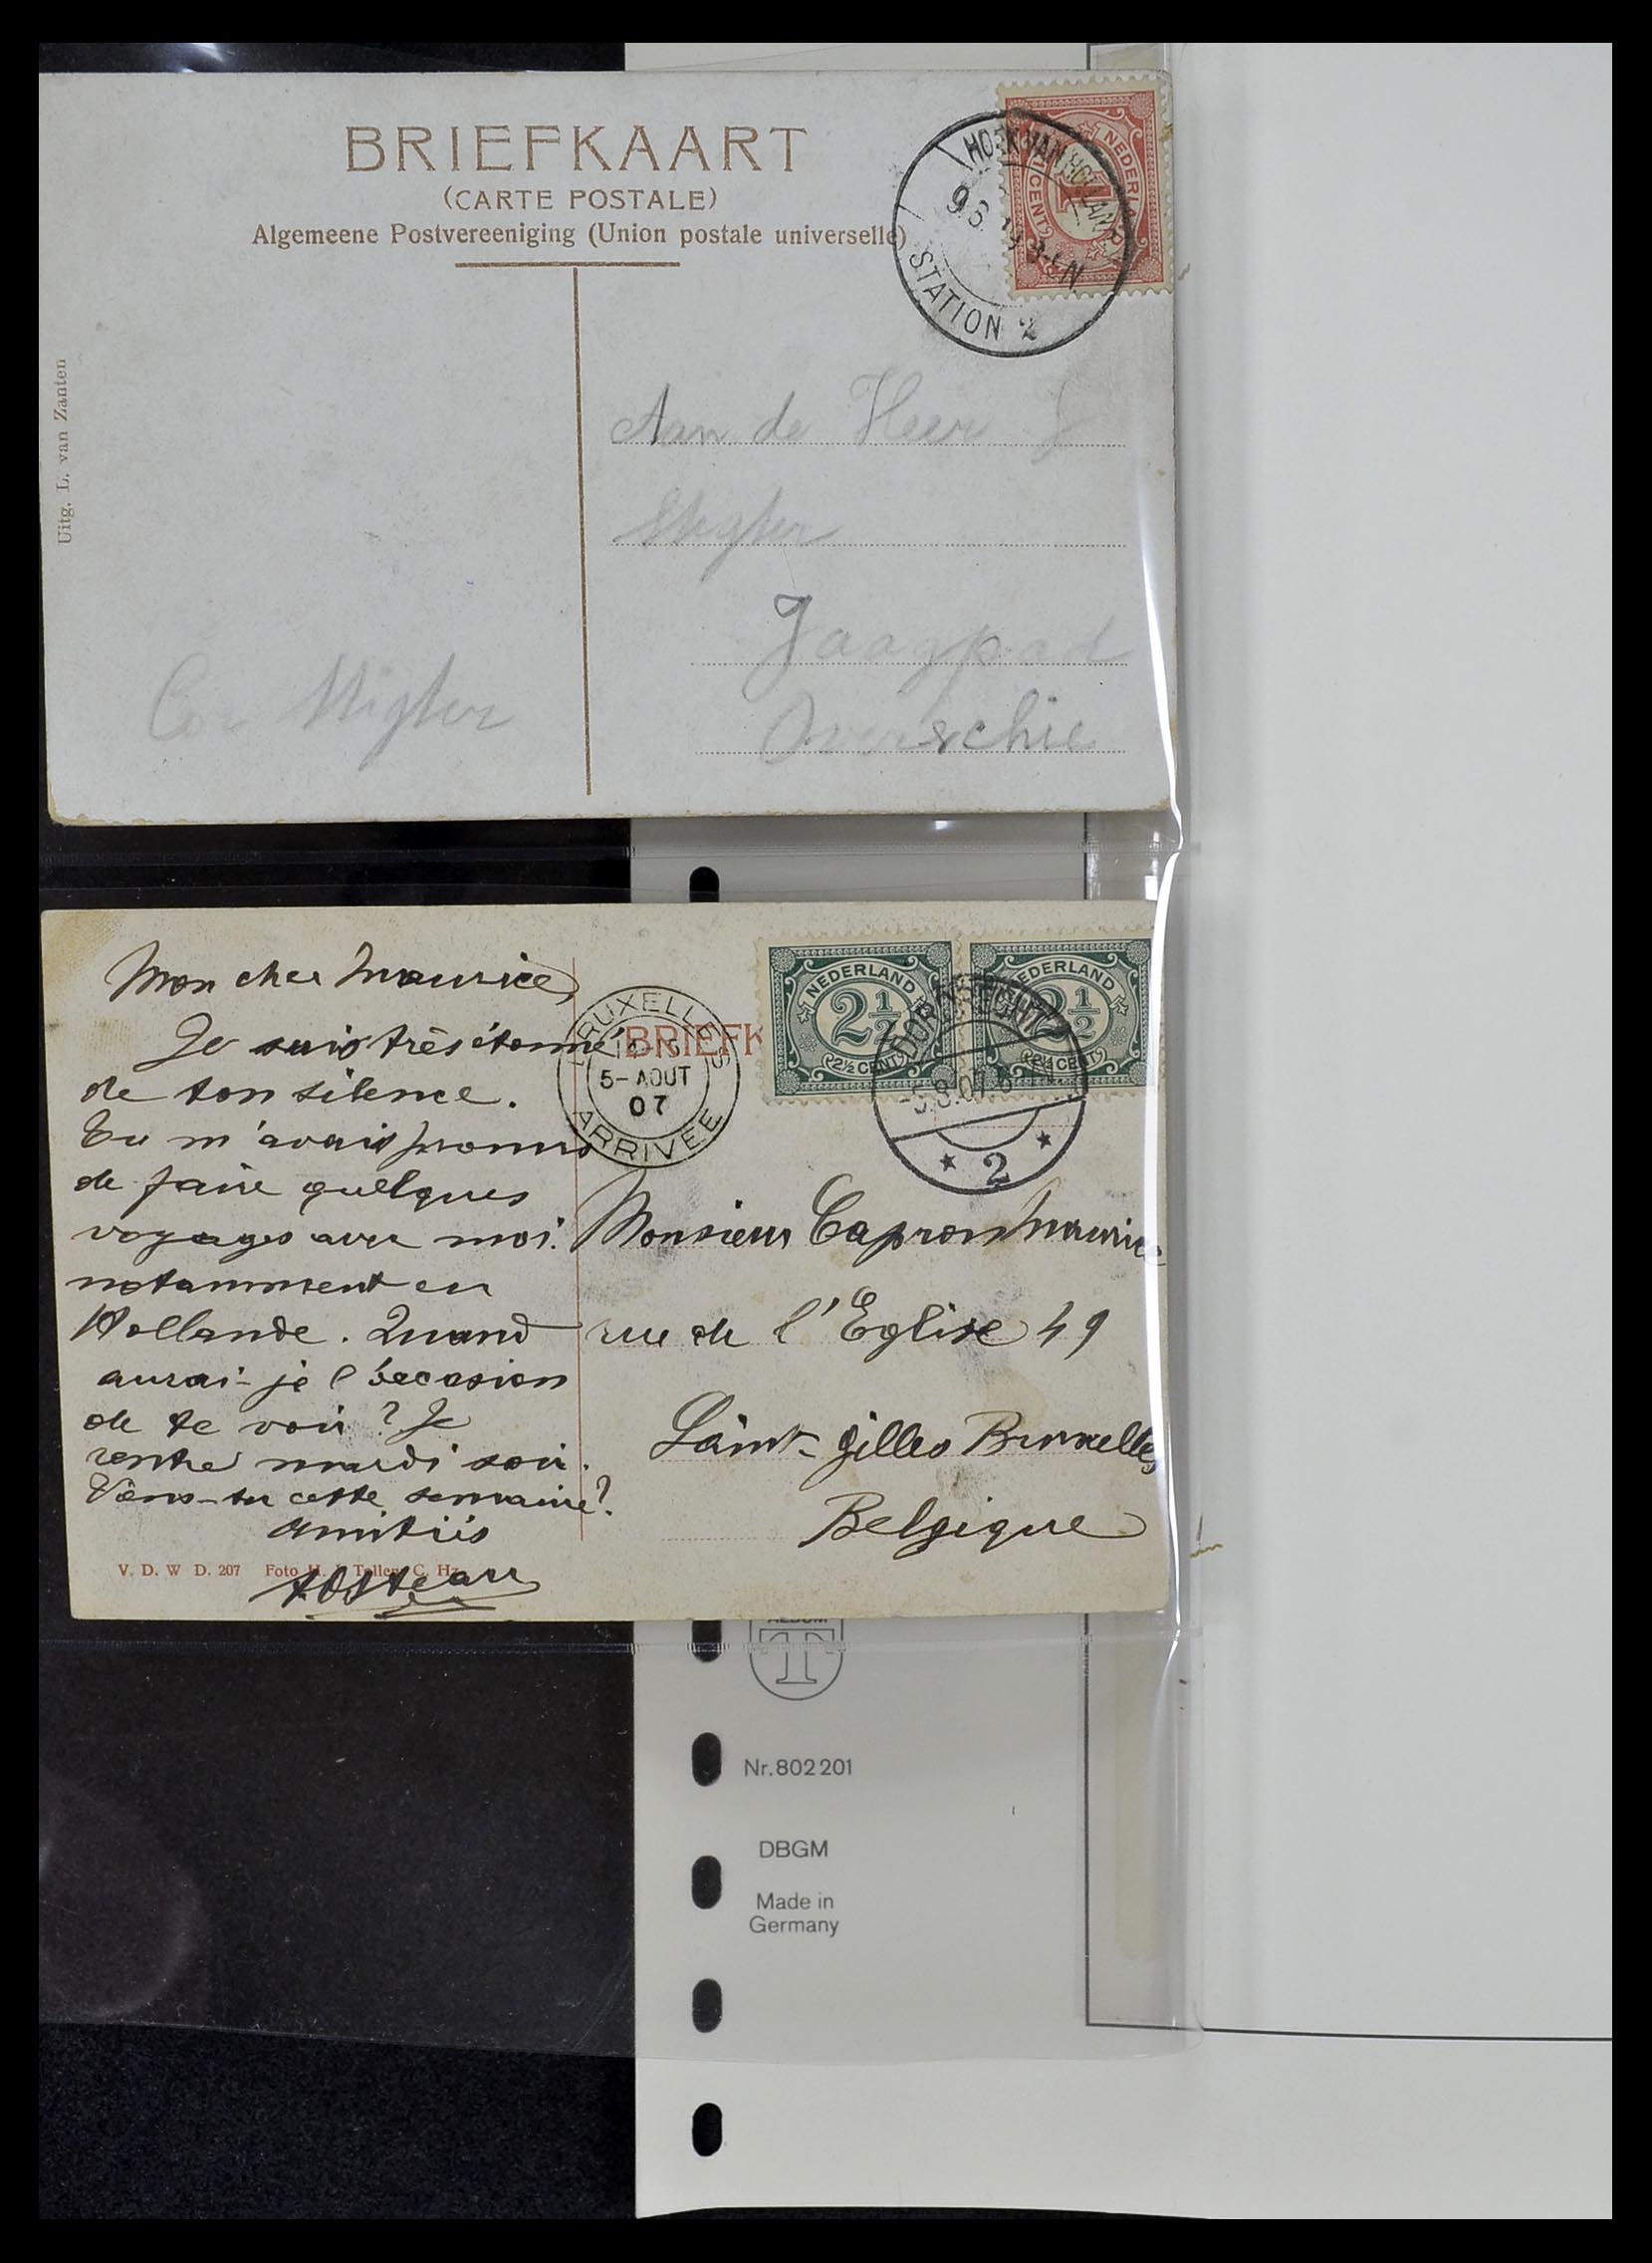 BRIEFKAART
(CARTE POSTALE)
Algemeene Postvereeniging (Union postale universelle)
HOEK VAN HOLLAND
STATION 2
NEDERLAND
1 CENT
1
Uitg. L. van Zanten
Aan de Heer J
Stigter
Jaagpad
Overschie
Cor Stigter
Mon cher Maurice,
Je suis très étonné
de ton silence.
Tu m'avais promis
de faire quelques
voyages avec moi.
notamment en
Hollande. Quand
aurai-je l'occasion
de te voir? Je
rentre mardi soir.
Viens-tu cette semaine?
Amitiés
V. D. W D. 207 Foto H. J. Tollens C. Hz
BRUXELLES
5-AOUT
07
ARRIVEE
BRIEFK
NEDERLAND
2½
2½ CENT
NEDERLAND
2½
2½ CENT
DORDRECHT
-5.8.07
2
Monsieur Capron Maurice
rue de l'Eglise 49
Saint-Gilles Bruxelles
Belgique
ALBUM
T
Nr. 802 201
DBGM
Made in
Germany